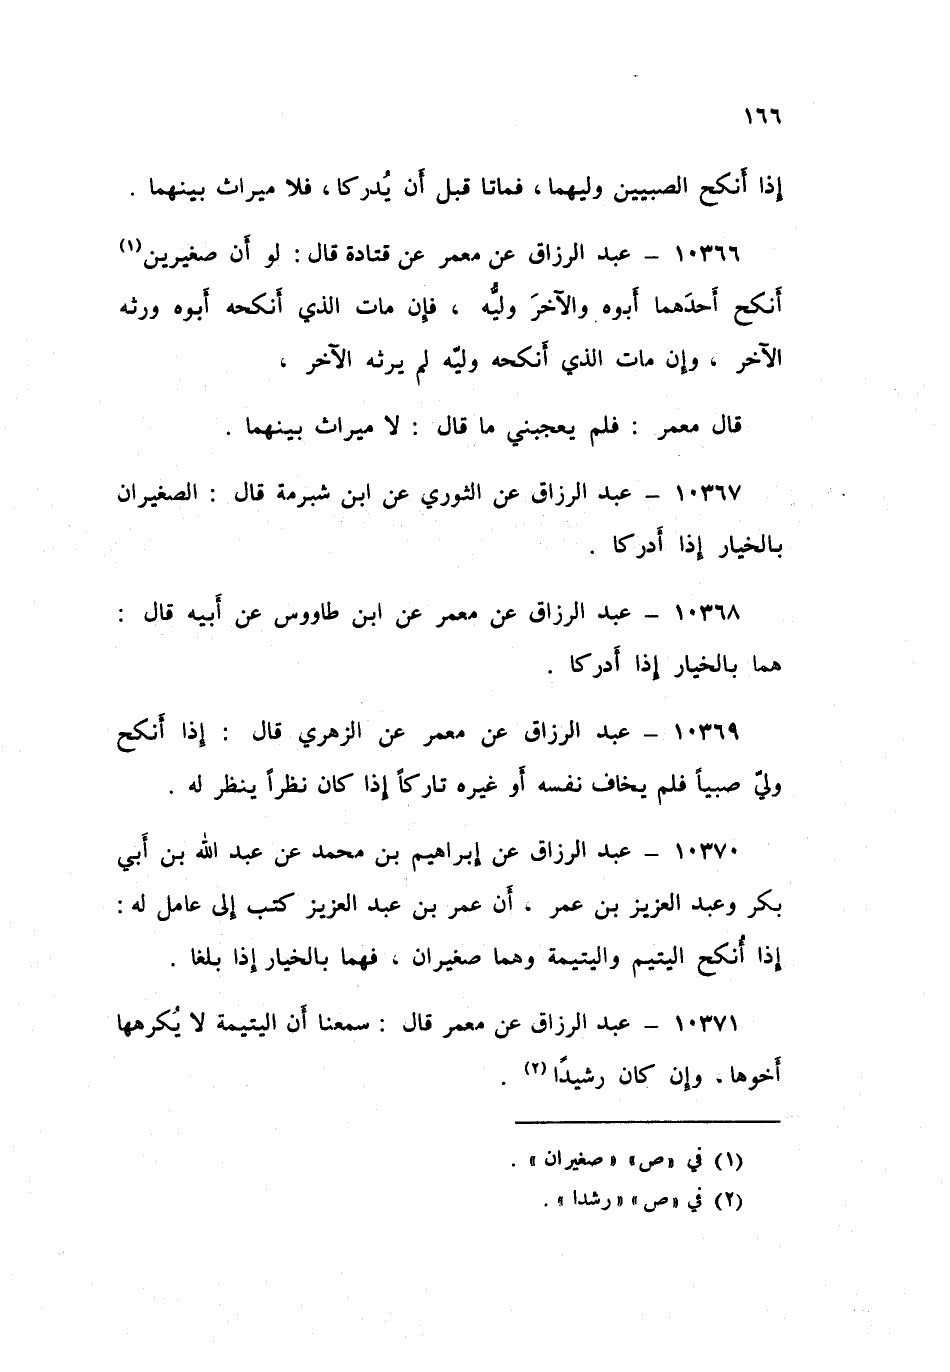 ١٦٦
إذا أَنكح الصبيين وليهما، فماتا قبل أَن يُدركا، فلا ميراث بينهما .
١٠٣٦٦ – عبد الرزاق عن معمر عن قتادة قال : لو أَن صغيرين(١)
أَنكح أَحدَهما أَبوه والآخرَ وليُّه ، فإن مات الذي أَنكحه أَبوه ورثه
الآخر ، وإن مات الذي أَنكحه وليّه لم يرثه الآخر ،
قال معمر : فلم يعجبني ما قال : لا ميراث بينهما .
١٠٣٦٧ – عبد الرزاق عن الثوري عن ابن شبرمة قال : الصغيران
بالخيار إذا أَدركا .
١٠٣٦٨ – عبد الرزاق عن معمر عن ابن طاووس عن أَبيه قال :
هما بالخيار إذا أَدركا .
١٠٣٦٩ – عبد الرزاق عن معمر عن الزهري قال : إذا أَنكح
وليّ صبياً فلم يخاف نفسه أَو غيره تاركاً إذا كان نظراً ينظر له .
١٠٣٧٠ – عبد الرزاق عن إبراهيم بن محمد عن عبد الله بن أَبي
بكر وعبد العزيز بن عمر ، أَن عمر بن عبد العزيز كتب إلى عامل له :
إذا أُنكح اليتيم واليتيمة وهما صغيران ، فهما بالخيار إذا بلغا .
١٠٣٧١ – عبد الرزاق عن معمر قال : سمعنا أَن اليتيمة لا يُكرهها
أَخوها، وإن كان رشيدًا(٢) .
(١) في «ص» «صغيران» .
(٢) في «ص» «رشدا» .